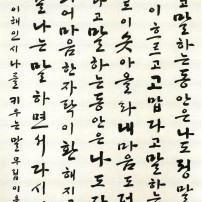 고 말하는 동안은 나도 정말
이 흐르고 고맙다고 말하는
이 솟아올라 내 마음도 더
다고 말하는 동안은 나도
어 마음 한 자락이 환해지
나는 말하면서 다시
이해인 시 나를 키우는 말 우림